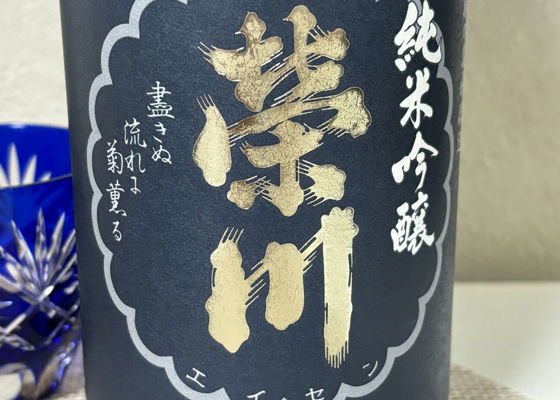 純米吟醸
榮川
盡きぬ
流れに
菊薫る
エイセン